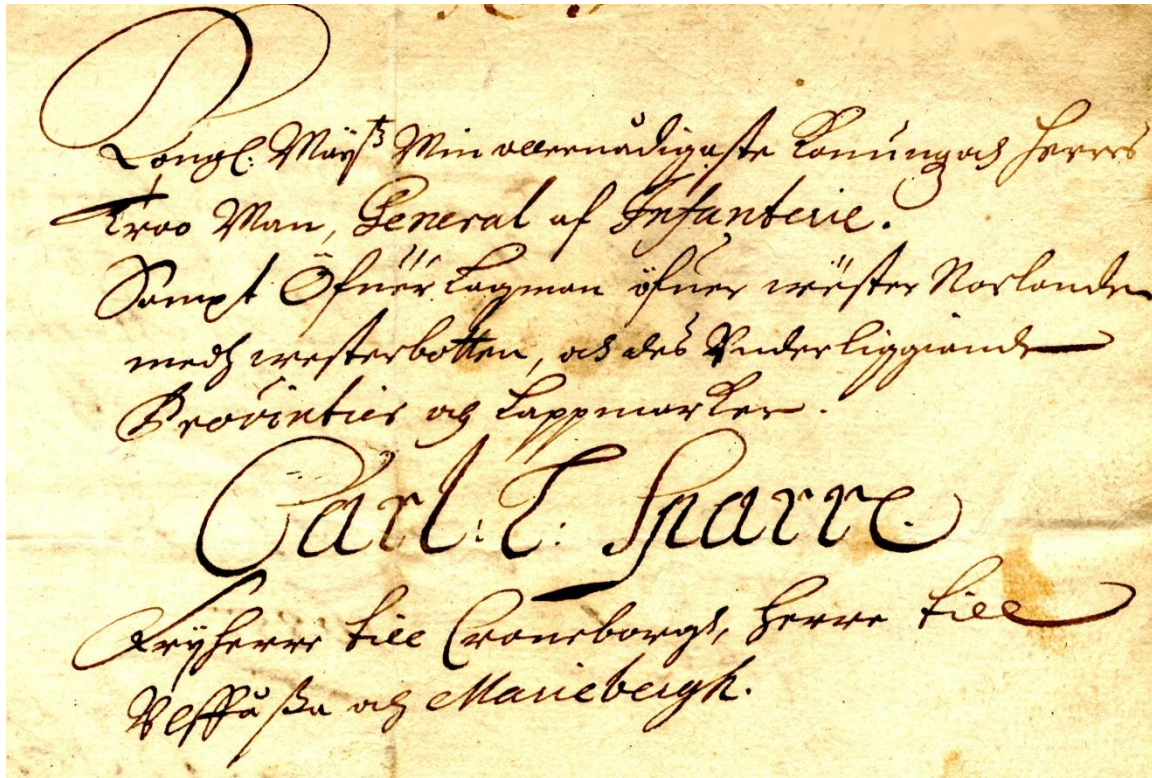 Kongl: Mayttz Min allernådigaste Konung och Herres
Troo Man, General af Infanterie.
Sampt Öfuer Lagman öfuer wäster Norlanden
medh westerbotten, och des Vnderliggiande
Provintier och Lappmarker.
Carl: L: Sparre.
Fryherre till Croneborgh, Herre till
och Mariebergh.